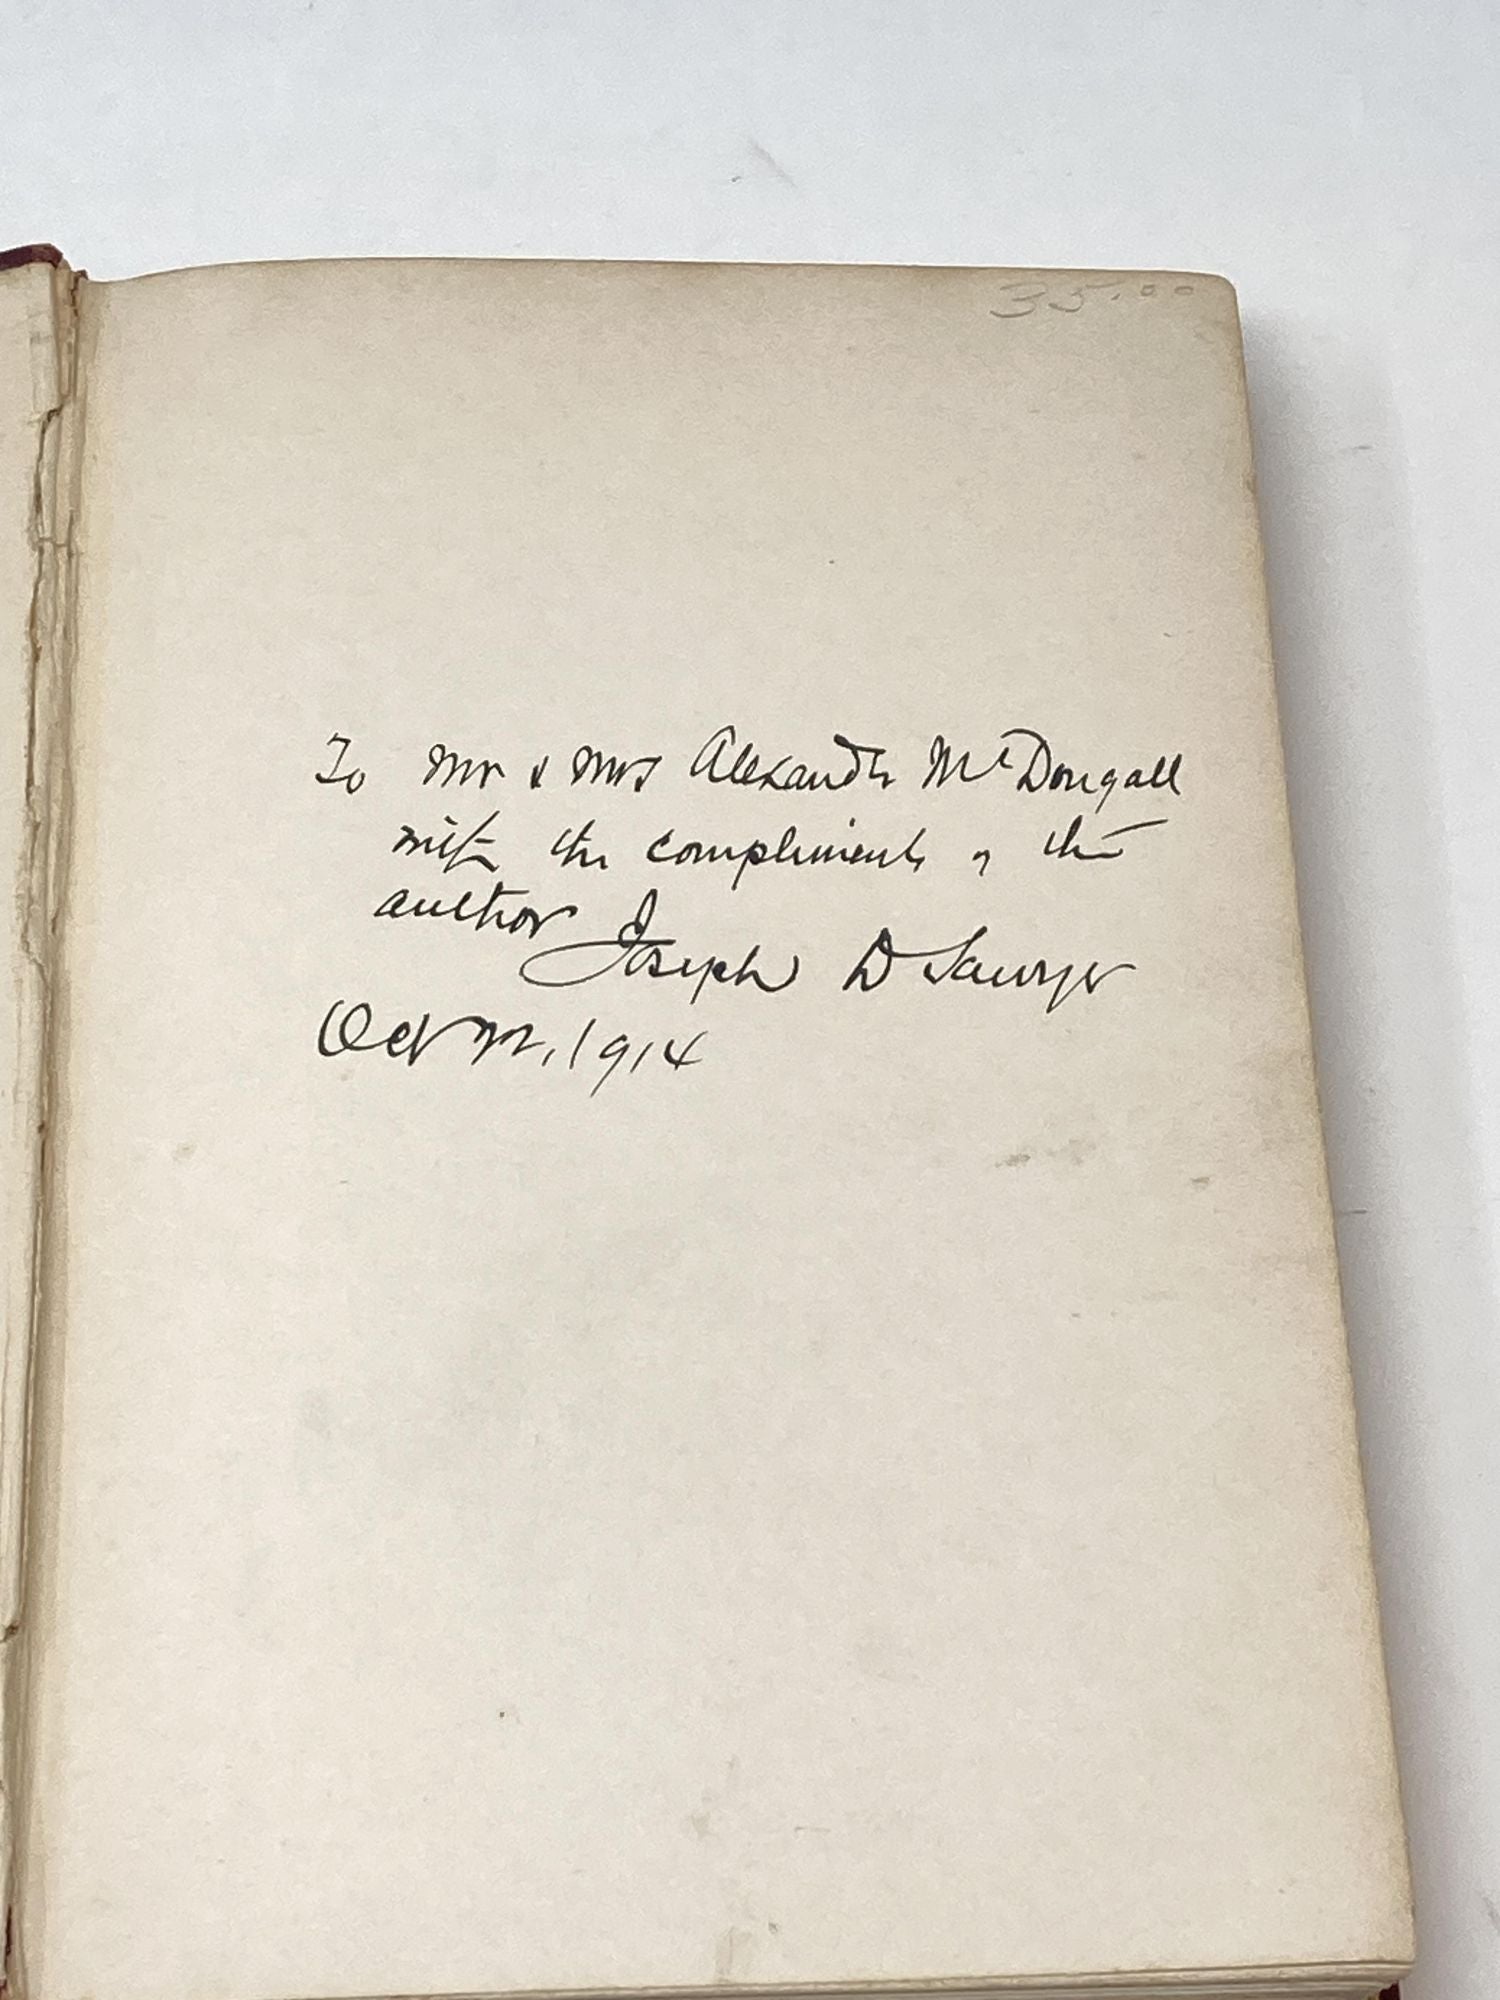 35.00
To Mr & Mrs Alexander McDougall
with the compliments of the
author
Joseph D Sawyer
Oct , 1914